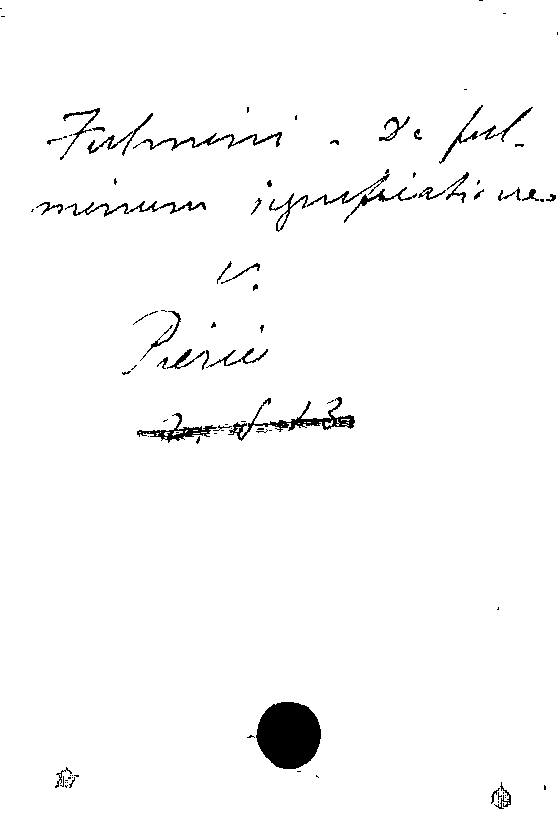 Fulmini - De ful-
minum significatione
v.
Pierii